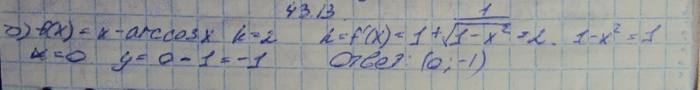 43.13.
б) f(x) = x - arccosx k=2 k=f'(x) = 1 + 1/√(1-x²) = 2. 1-x² = 1
x=0 y = 0 - 1 = -1 Ответ: (0; -1)